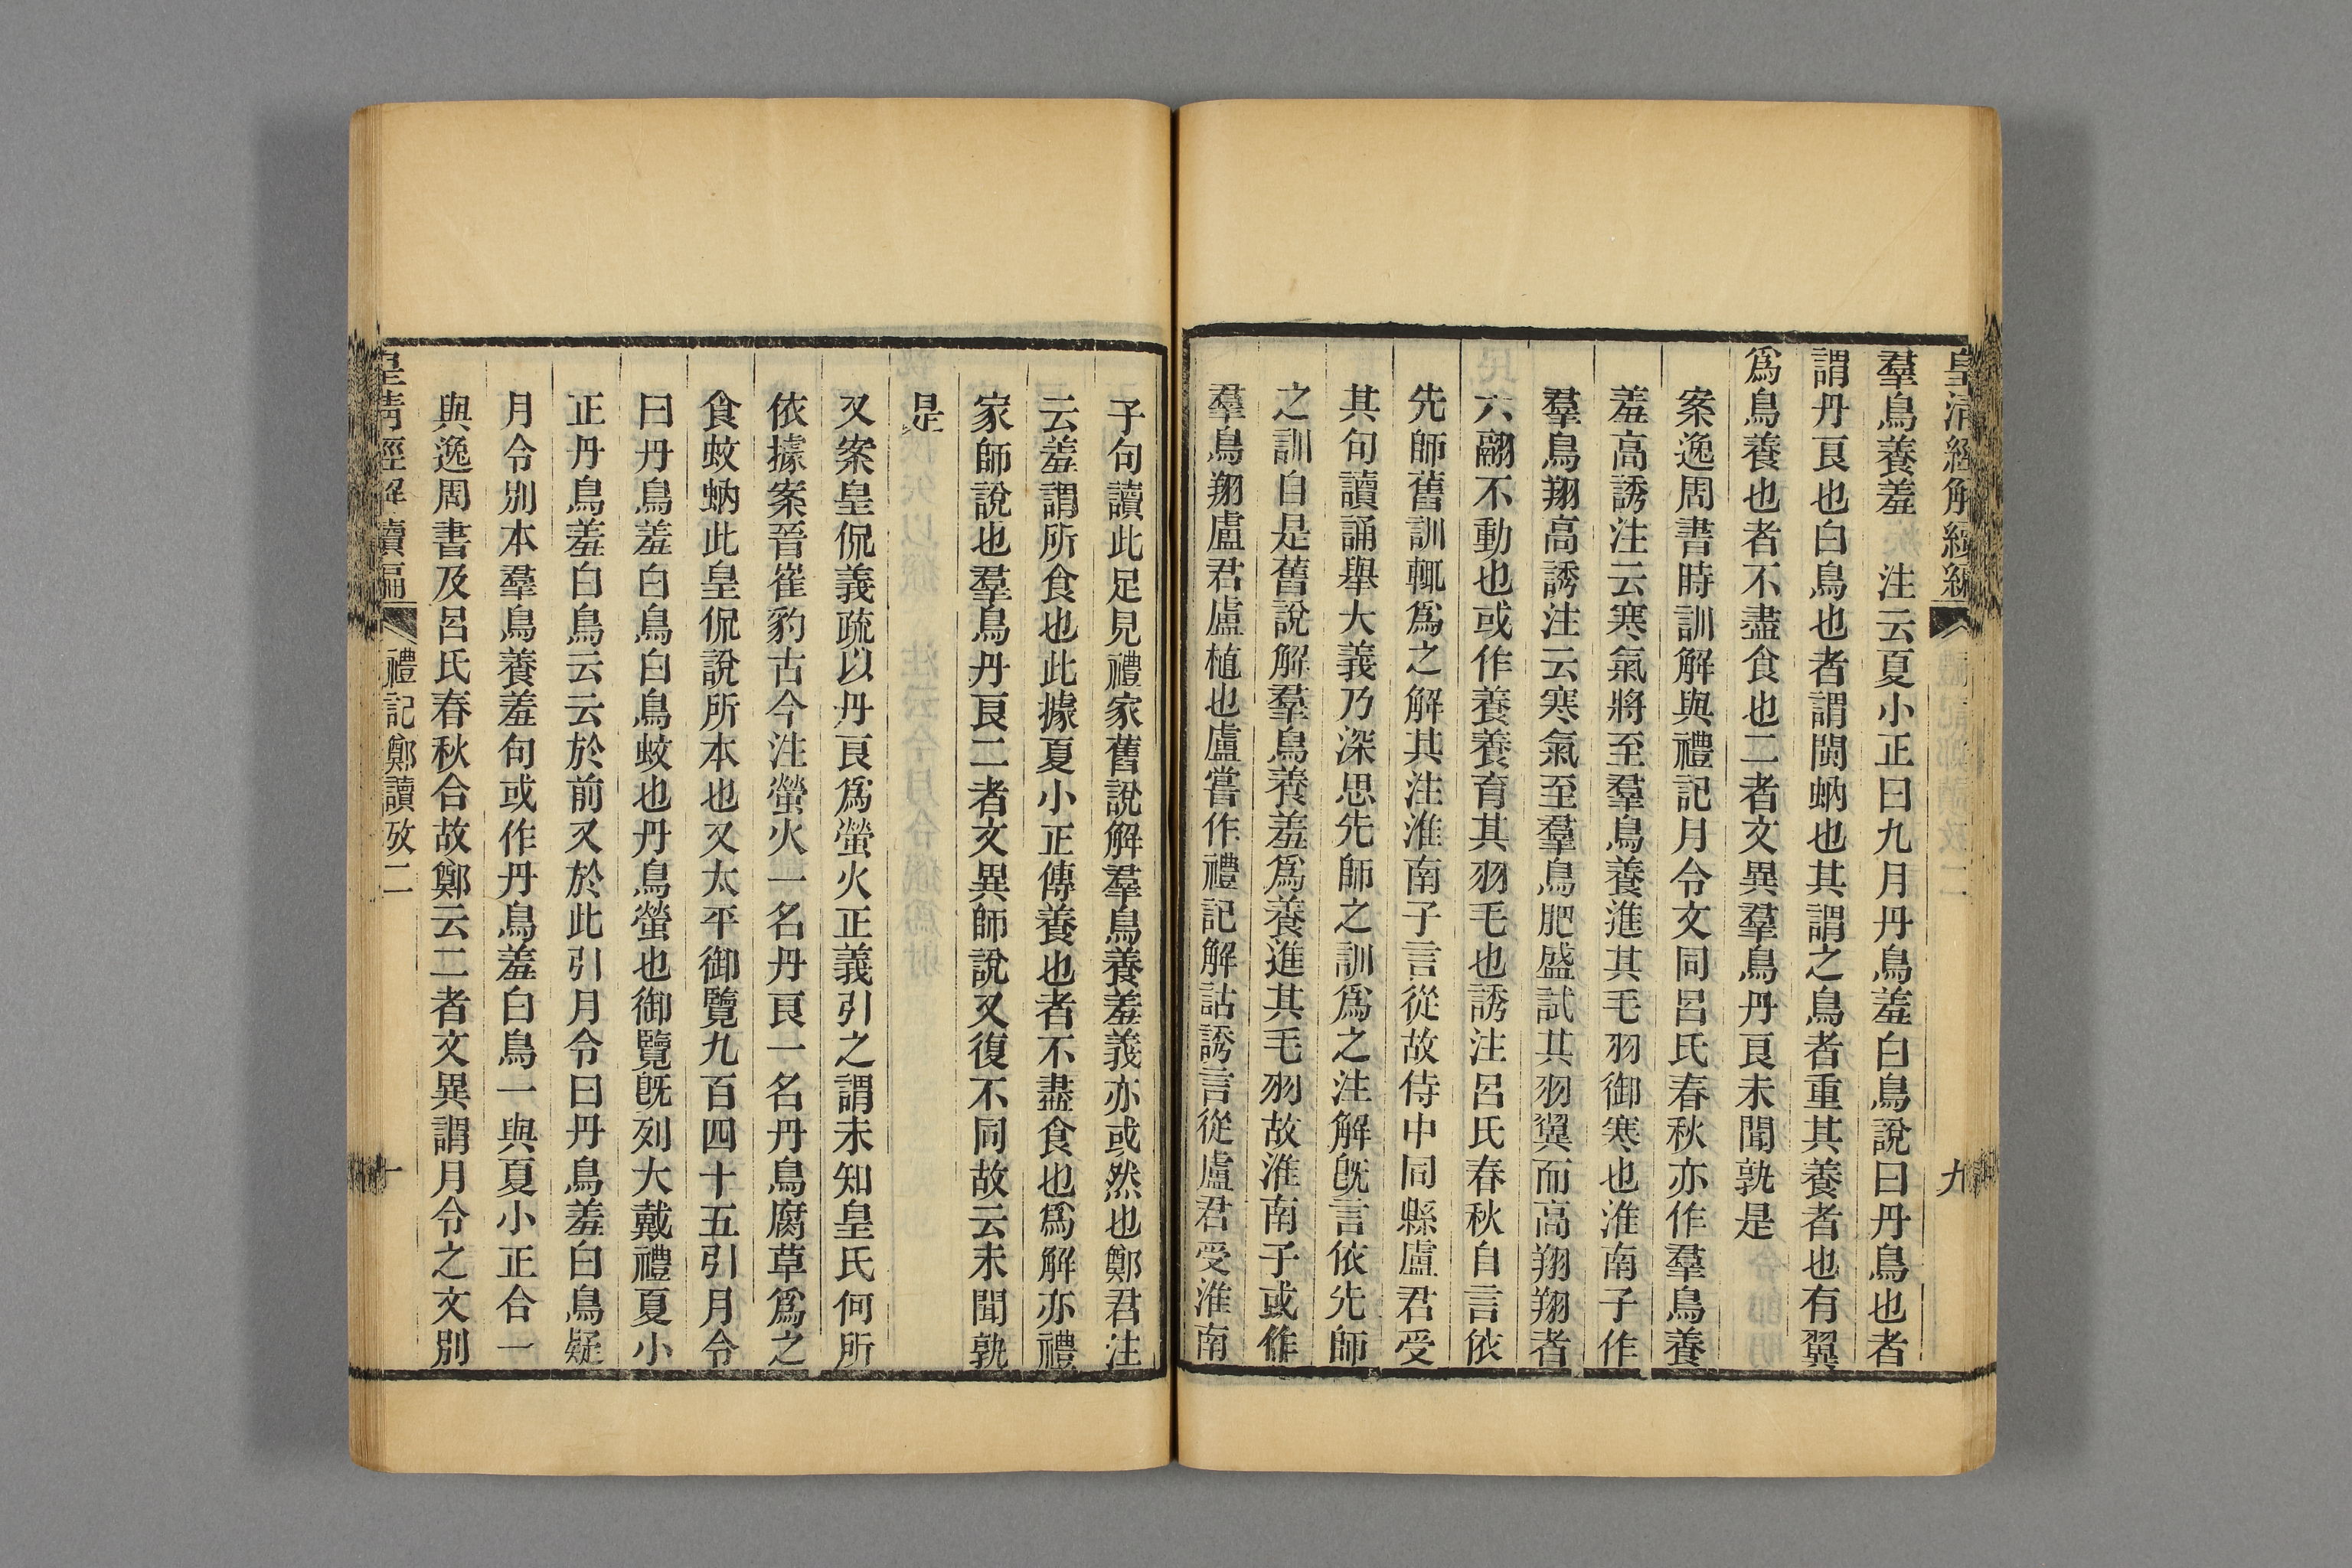 羣鳥養羞　注云夏小正曰九月丹鳥羞白鳥說曰丹鳥也者
謂丹良也白鳥也者謂閩蚋也其謂之鳥者重其養者也有翼
爲鳥養也者不盡食也二者文異羣鳥丹良未聞孰是
案逸周書時訓解與禮記月令文同呂氏春秋亦作羣鳥養
羞高誘注云寒氣將至羣鳥養進其毛羽御寒也淮南子作
羣鳥翔高誘注云寒氣至羣鳥肥盛試其羽翼而高翔翔者
六翮不動也或作養養育其羽毛也誘注呂氏春秋自言依
先師舊訓輒爲之解其注淮南子言從故侍中同縣盧君受
其句讀誦舉大義乃深思先師之訓爲之注解旣言依先師
之訓自是舊說解羣鳥養羞爲養進其毛羽故淮南子或作
羣鳥翔盧君盧植也盧嘗作禮記解詁誘言從盧君受淮南
子句讀此足見禮家舊說解羣鳥養羞義亦或然也鄭君注
云羞謂所食也此據夏小正傳養也者不盡食也爲解亦禮
家師說也羣鳥丹良二者文異師說又復不同故云未聞孰
是
又案皇侃義疏以丹良爲螢火正義引之謂未知皇氏何所
依據案晉崔豹古今注螢火一名丹良一名丹鳥腐草爲之
食蚊蚋此皇侃說所本也又太平御覽九百四十五引月令
曰丹鳥羞白鳥白鳥蚊也丹鳥螢也御覽旣列大戴禮夏小
正丹鳥羞白鳥云云於前又於此引月令曰丹鳥羞白鳥疑
月令別本羣鳥養羞句或作丹鳥羞白鳥一與夏小正合一
與逸周書及呂氏春秋合故鄭云二者文異謂月令之文別
皇清經解續編　禮記鄭讀攷二　十